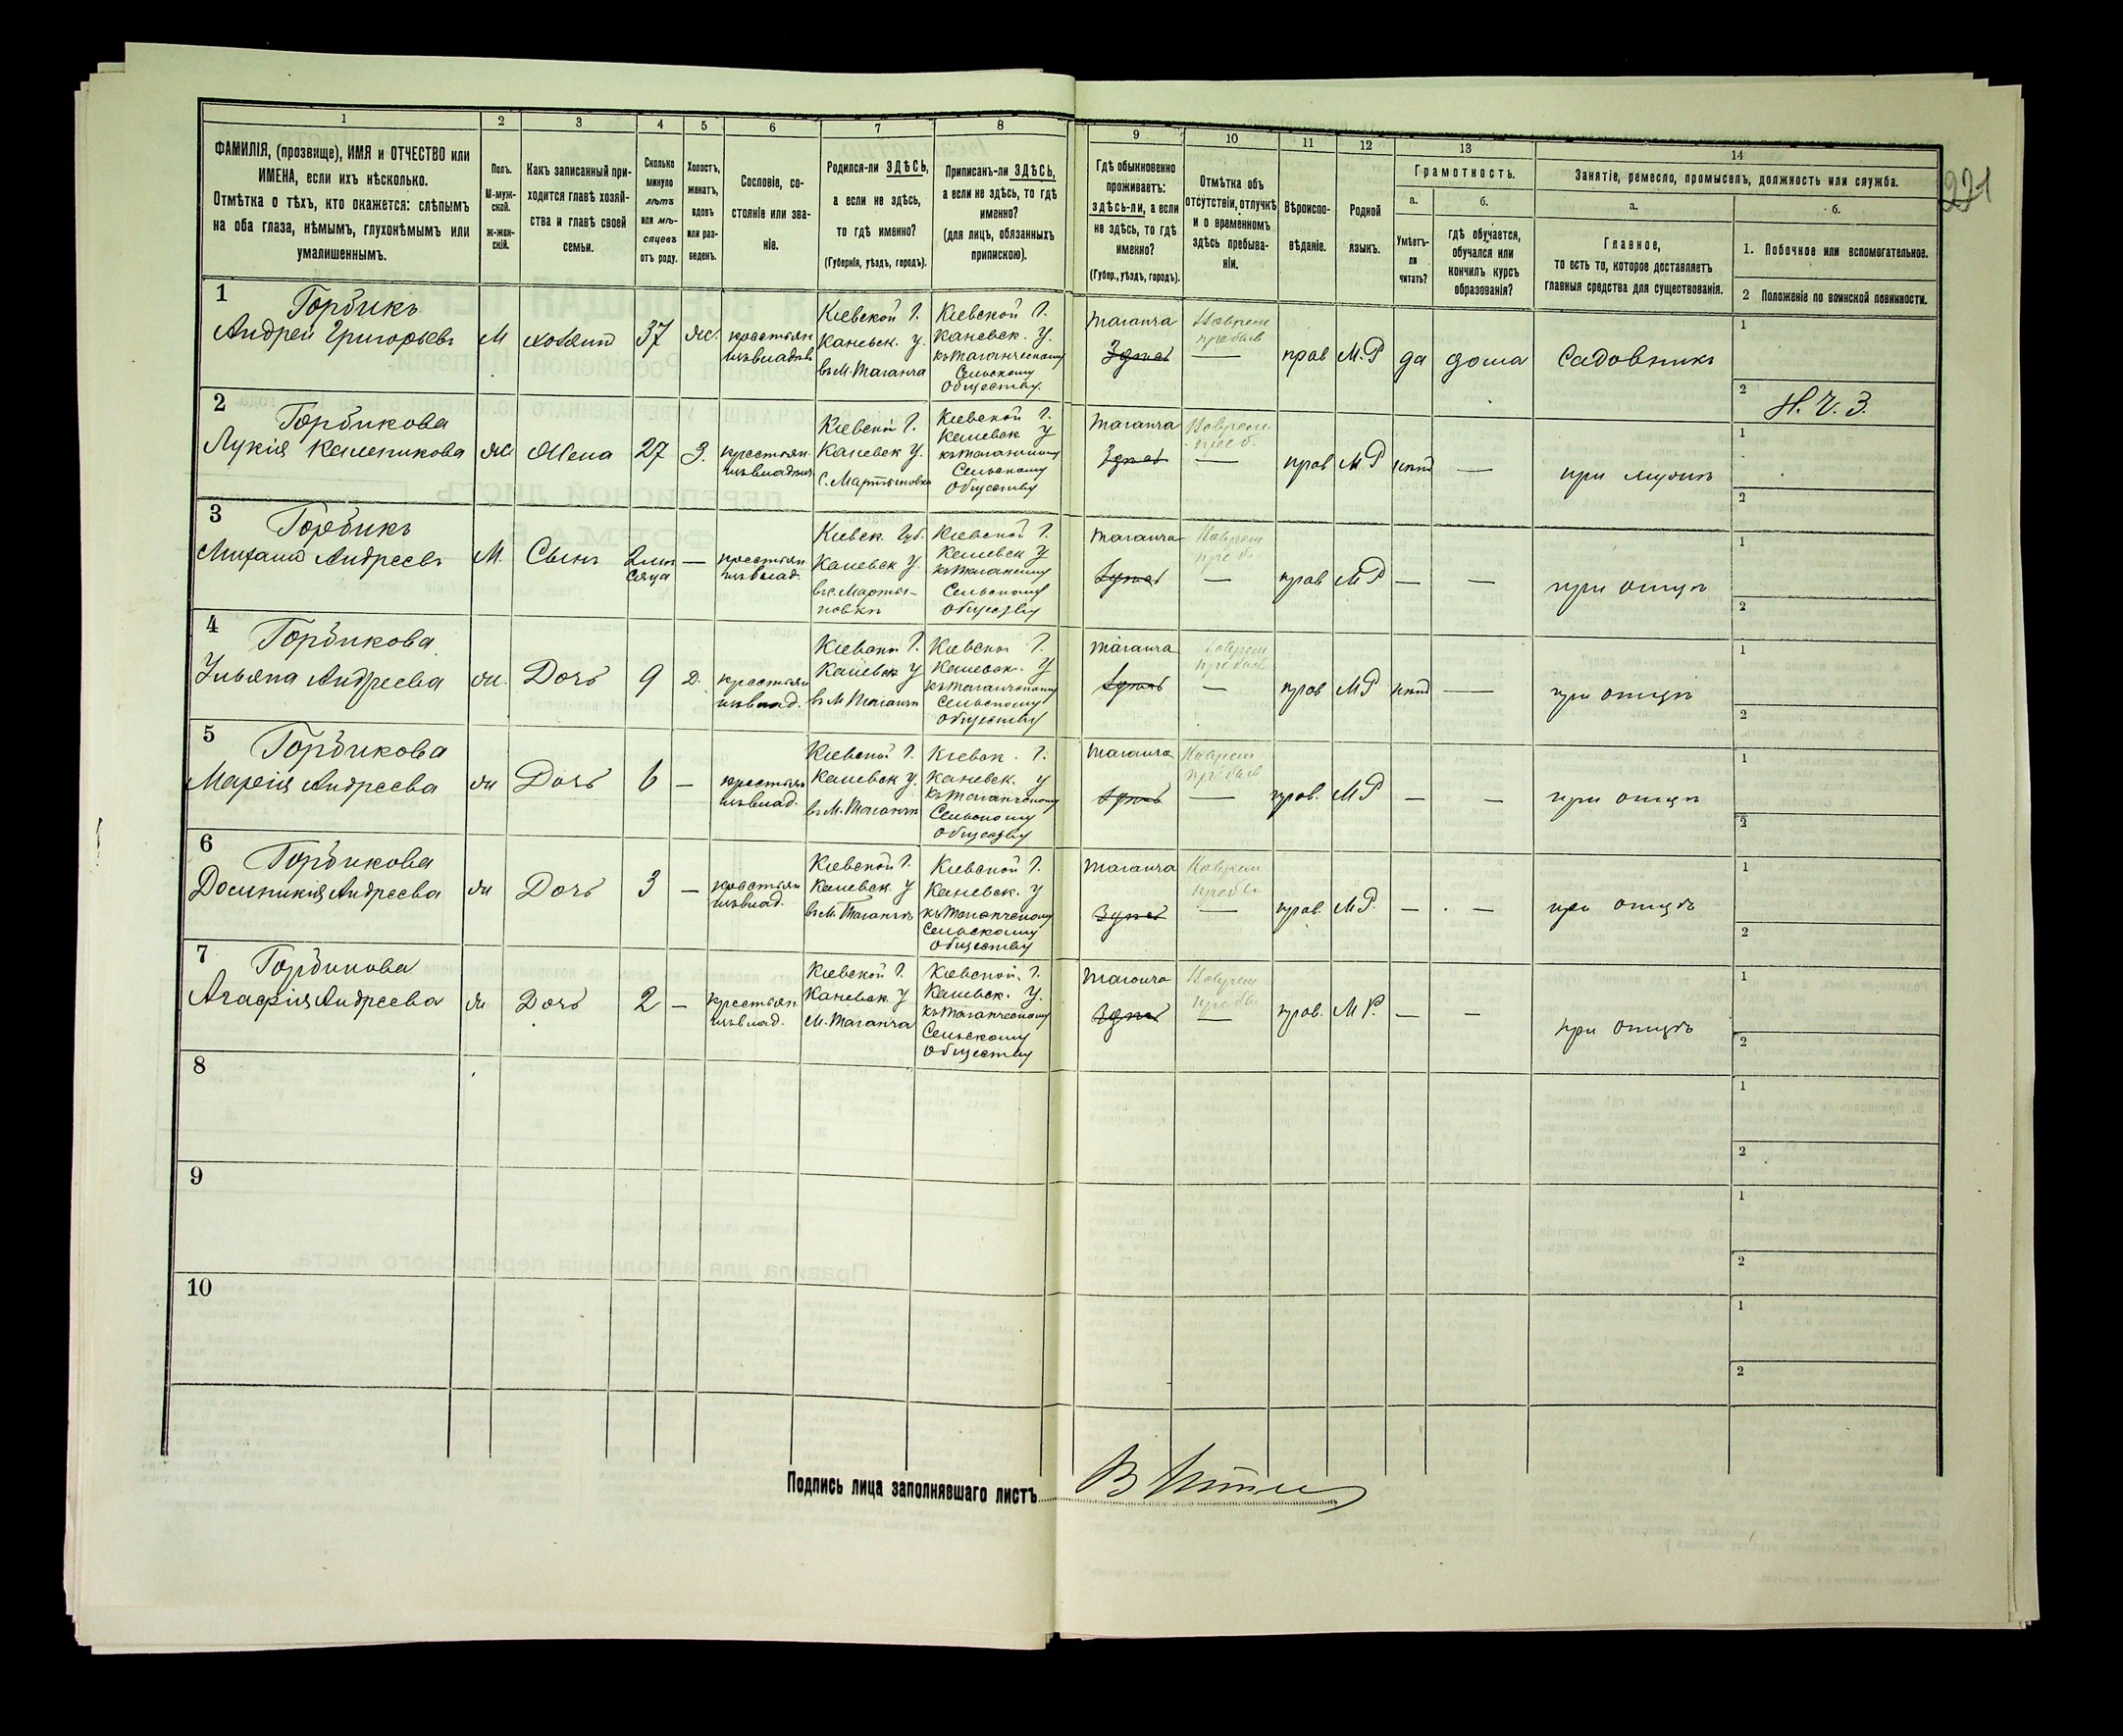 1 2 3 4 5 6 7 8 9 10 11 12 13 14
ФАМИЛІЯ, (прозвище), ИМЯ и ОТЧЕСТВО или
ИМЕНА, если ихъ нѣсколько.
Отмѣтка о тѣхъ, кто окажется: слѣпымъ
на оба глаза, нѣмымъ, глухонѣмымъ или
умалишеннымъ.
Полъ.
М-муж-
ской.
ж-жен-
скій.
Какъ записанный при-
ходится главѣ хозяй-
ства и главѣ своей
семьи.
Сколько
минуло
лѣтъ
или мѣ-
сяцевъ
отъ роду.
Холостъ,
женатъ,
вдовъ
или раз-
веденъ.
Сословіе, со-
стояніе или зва-
ніе.
Родился-ли ЗДѢСЬ,
а если не здѣсь,
то гдѣ именно?
(Губернія, уѣздъ, городъ).
Приписанъ-ли ЗДѢСЬ,
а если не здѣсь, то гдѣ
именно?
(для лицъ, обязанныхъ
припискою).
Гдѣ обыкновенно
проживаетъ:
здѣсь-ли, а если
не здѣсь, то гдѣ
именно?
(Губер., уѣздъ, городъ).
Отмѣтка объ
отсутствіи, отлучкѣ
и о временномъ
здѣсь пребыва-
ніи.
Вѣроиспо-
вѣданіе.
Родной
языкъ.
Грамотность.
а.
Умѣетъ-
ли
читать?
б.
гдѣ обучается,
обучался или
кончилъ курсъ
образованія?
Занятіе, ремесло, промыселъ, должность или служба.
а.
Главное,
то есть то, которое доставляетъ
главныя средства для существованія.
б.
1. Побочное или вспомогательное.
2 Положеніе по воинской повинности.
221
1
Горбикъ
Андрей Григорьевъ
М
хозяинъ
37
ж.
крестьян
изъ владѣл
Кіевской Г.
Каневск. у.
въ М. Таганча
Кіевской Г.
Каневск. У.
къ Таганческому
Сельскому
Обществу.
Таганча
Здѣсь
Наврем
пребыв
—
прав
М.Р
да
дома
Садовникъ
1
2
Н. Ч. З.
2
Горбикова
Лукія
ж
Жена
27
З.
крестьян
Кіевской Г.
Каневск у.
С. Мартыновка
Кіевской Г.
Каневск У
къ Таганческому
Сельскому
Обществу
Таганча
Здѣсь
—
прав
М.Р
нѣтъ
—
при мужѣ
1
2
3
Горбикъ
Михаилъ Андреевъ
М.
Сынъ
2 мѣ
сяца
—
крестьян
изъ влад.
Кіевск. Губ.
Каневск У.
въ с. Марты-
новкѣ
Кіевской Г.
Каневск У
къ Таганческому
Сельскому
Обществу
Таганча
Здѣсь
—
прав
М.Р
—
—
при отцѣ
1
2
4
Горбикова
Ульяна Андреева
ж.
Дочь
9
Д.
крестьян
изъ влад.
Кіевской Г.
Каневск У
въ М Таганчѣ
Кіевской Г.
Каневск. У
къ Таганческому
Сельскому
Обществу
Таганча
Здѣсь
—
прав
М.Р
нѣтъ
—
при отцѣ
1
2
5
Горбикова
Марія Андреева
ж
Дочь
6
—
крестьян
изъ влад.
Кіевской Г.
Каневск у.
въ М. Таганчѣ
Кіевск. Г.
Каневск. У
къ Таганческому
Сельскому
Обществу
Таганча
Здѣсь
Наврем
пребыв
—
прав.
М.Р
—
—
при отцѣ
1
2
6
Горбикова
Домникія Андреева
ж
Дочь
3
—
крестьян
изъ влад.
Кіевской Г.
Каневск. У
въ М. Таганчѣ
Кіевской Г.
Каневск. У
къ Таганческому
Сельскому
Обществу
Таганча
Здѣсь
—
прав.
М.Р.
—
—
при отцѣ
1
2
7
Горбикова
Агафія Андреева
ж
Дочь
2
—
крестьян
изъ влад.
Кіевской Г.
Каневск. У
М. Таганча
Кіевской. Г.
Каневск. У.
къ Таганческому
Сельскому
Обществу
Таганча
Здѣсь
—
прав.
М.Р.
—
—
при отцѣ
1
2
8
1
2
9
1
2
10
1
2
Подпись лица заполнявшаго листъ